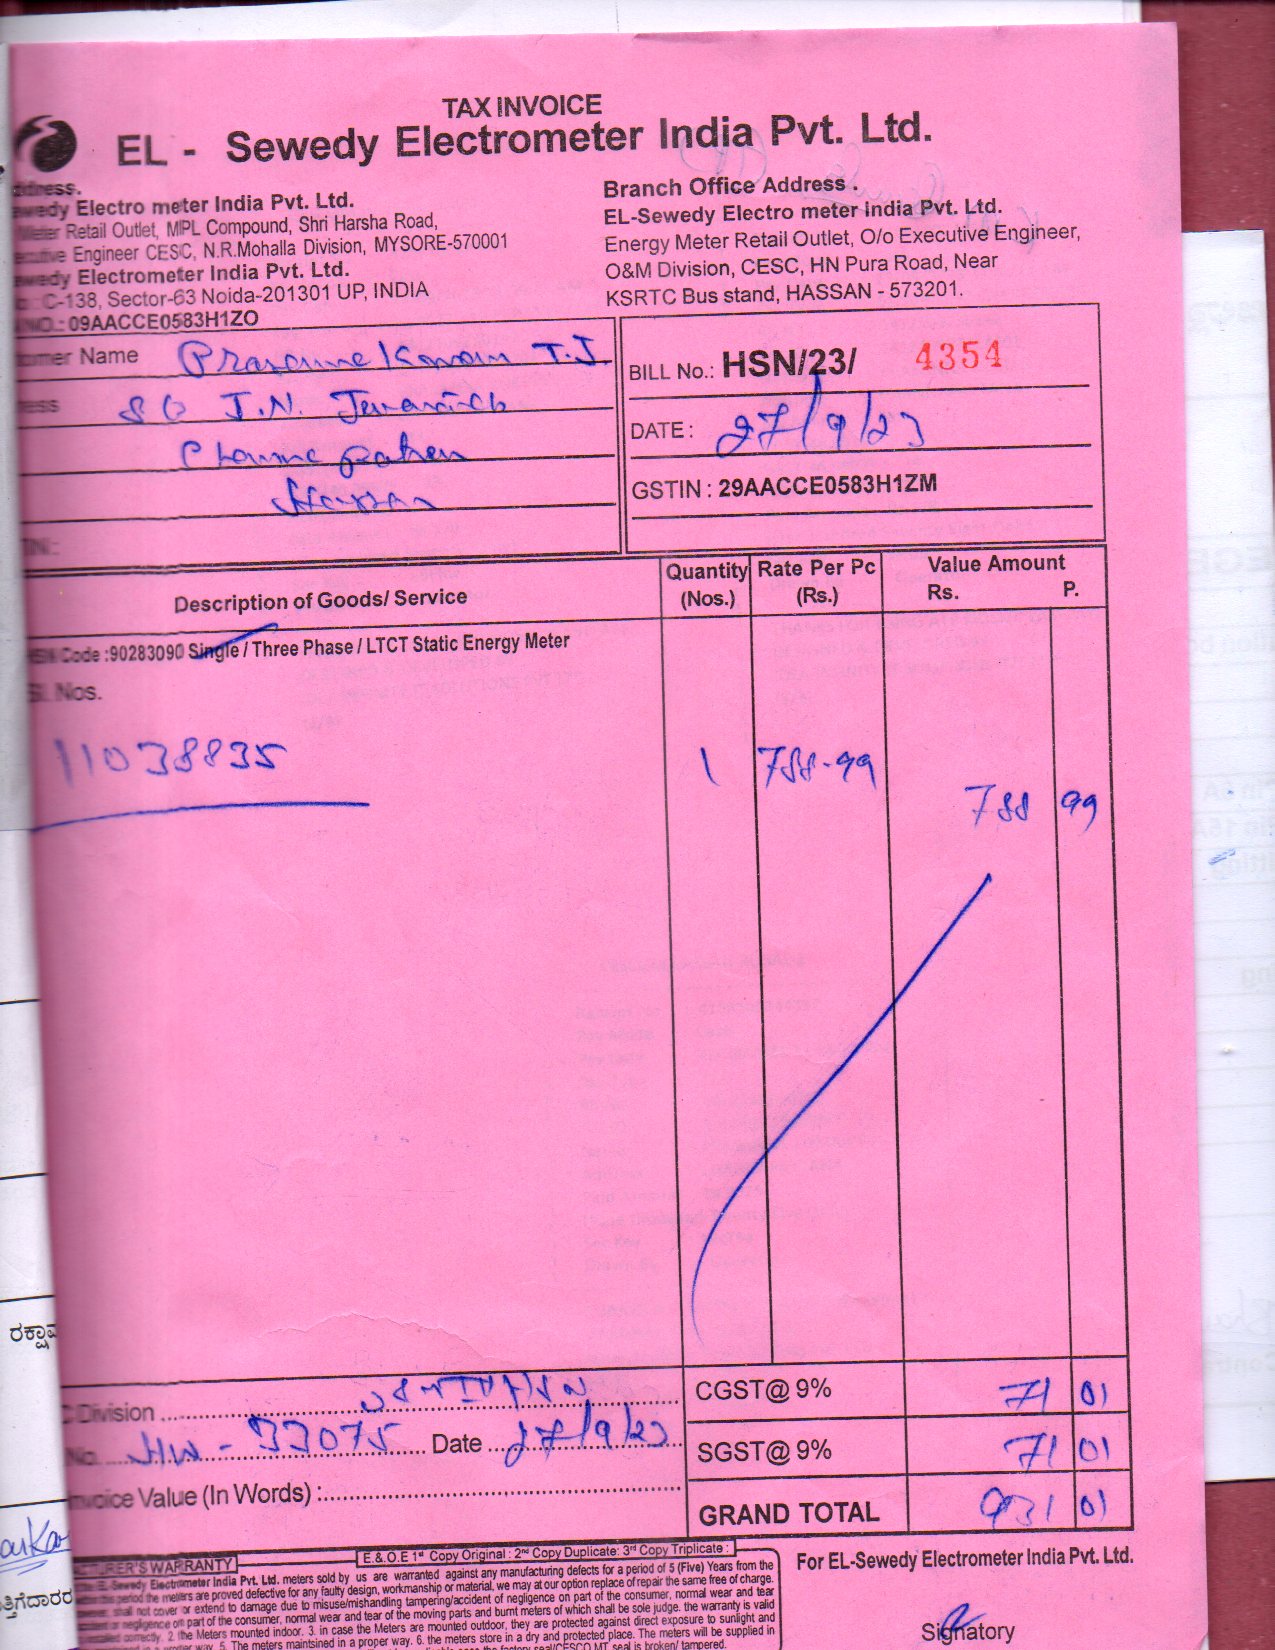 TAX INVOICE
EL - Sewedy Electrometer India Pvt. Ltd.
Electro meter India Pvt. Ltd.
Retail Outlet, MIPL Compound, Shri Harsha Road,
Engineer CESC, N.R.Mohalla Division, MYSORE-570001
Electrometer India Pvt. Ltd.
C-138, Sector-63 Noida-201301 UP, INDIA
09AACCE0583H1ZO
Branch Office Address .
EL-Sewedy Electro meter India Pvt. Ltd.
Energy Meter Retail Outlet, O/o Executive Engineer,
O&M Division, CESC, HN Pura Road, Near
KSRTC Bus stand, HASSAN - 573201.
Name T.J.
Hassan
BILL No.: HSN/23/ 4354
DATE : 27/9/23
GSTIN : 29AACCE0583H1ZM
Description of Goods/ Service
Quantity (Nos.)
Rate Per Pc (Rs.)
Value Amount
Rs. P.
Code :90283090 Single / Three Phase / LTCT Static Energy Meter
Sl. Nos.
11038835 1 788-99
788 99
Division
CGST@ 9% 71 01
No. HW-33075 Date 27/9/23
SGST@ 9% 71 01
Invoice Value (In Words) :
GRAND TOTAL 931 01
E.& O.E 1st Copy Original : 2nd Copy Duplicate: 3rd Copy Triplicate :
WARRANTY
Electrometer India Pvt. Ltd. meters sold by us are warranted against any manufacturing defects for a period of 5 (Five) Years from the
period the meters are proved defective for any faulty design, workmanship or material, we may at our option replace of repair the same free of charge.
shall not cover or extend to damage due to misuse/mishandling tampering/accident of negligence on part of the consumer, normal wear and tear
or negligence off part of the consumer, normal wear and tear of the moving parts and burnt meters of which shall be sole judge. the warranty is valid
correctly. 2. the Meters mounted indoor. 3. in case the Meters are mounted outdoor, they are protected against direct exposure to sunlight and
way. 5. The meters maintsined in a proper way. 6. the meters store in a dry and protected place. The meters will be supplied in
For EL-Sewedy Electrometer India Pvt. Ltd.
Signatory